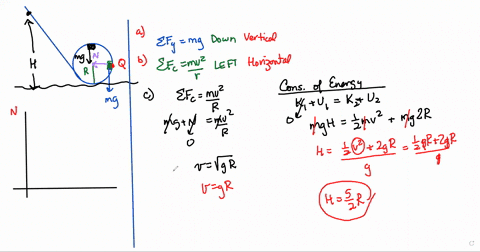 H
mg
N
R
Q
mg
N
a) ΣFy = mg Down Vertical
b) ΣFc = mv²/r LEFT Horizontal
c) ΣFc = mv²/R
mg + N = mv²/R
0
v = √gR
v = gR
Cons. of Energy
K₁ + U₁ = K₂ + U₂
0
mgH = ½mv² + mg2R
H = (½v² + 2gR)/g = (½gR + 2gR)/g
H = 5/2 R